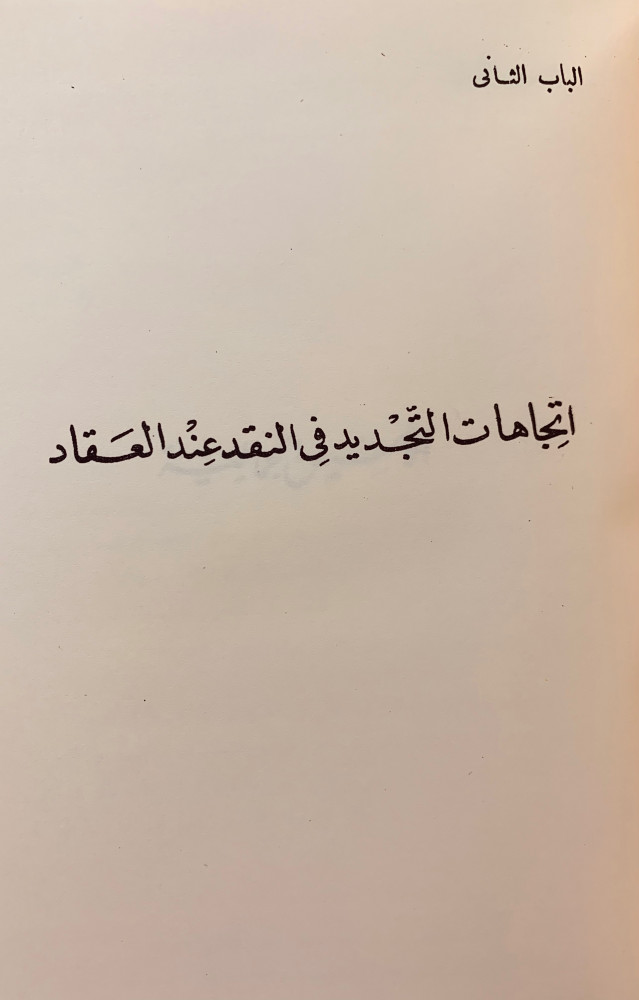 الباب الثانى
اتِجاهات التّجْديد فِى النقد عِنْد العَقاد